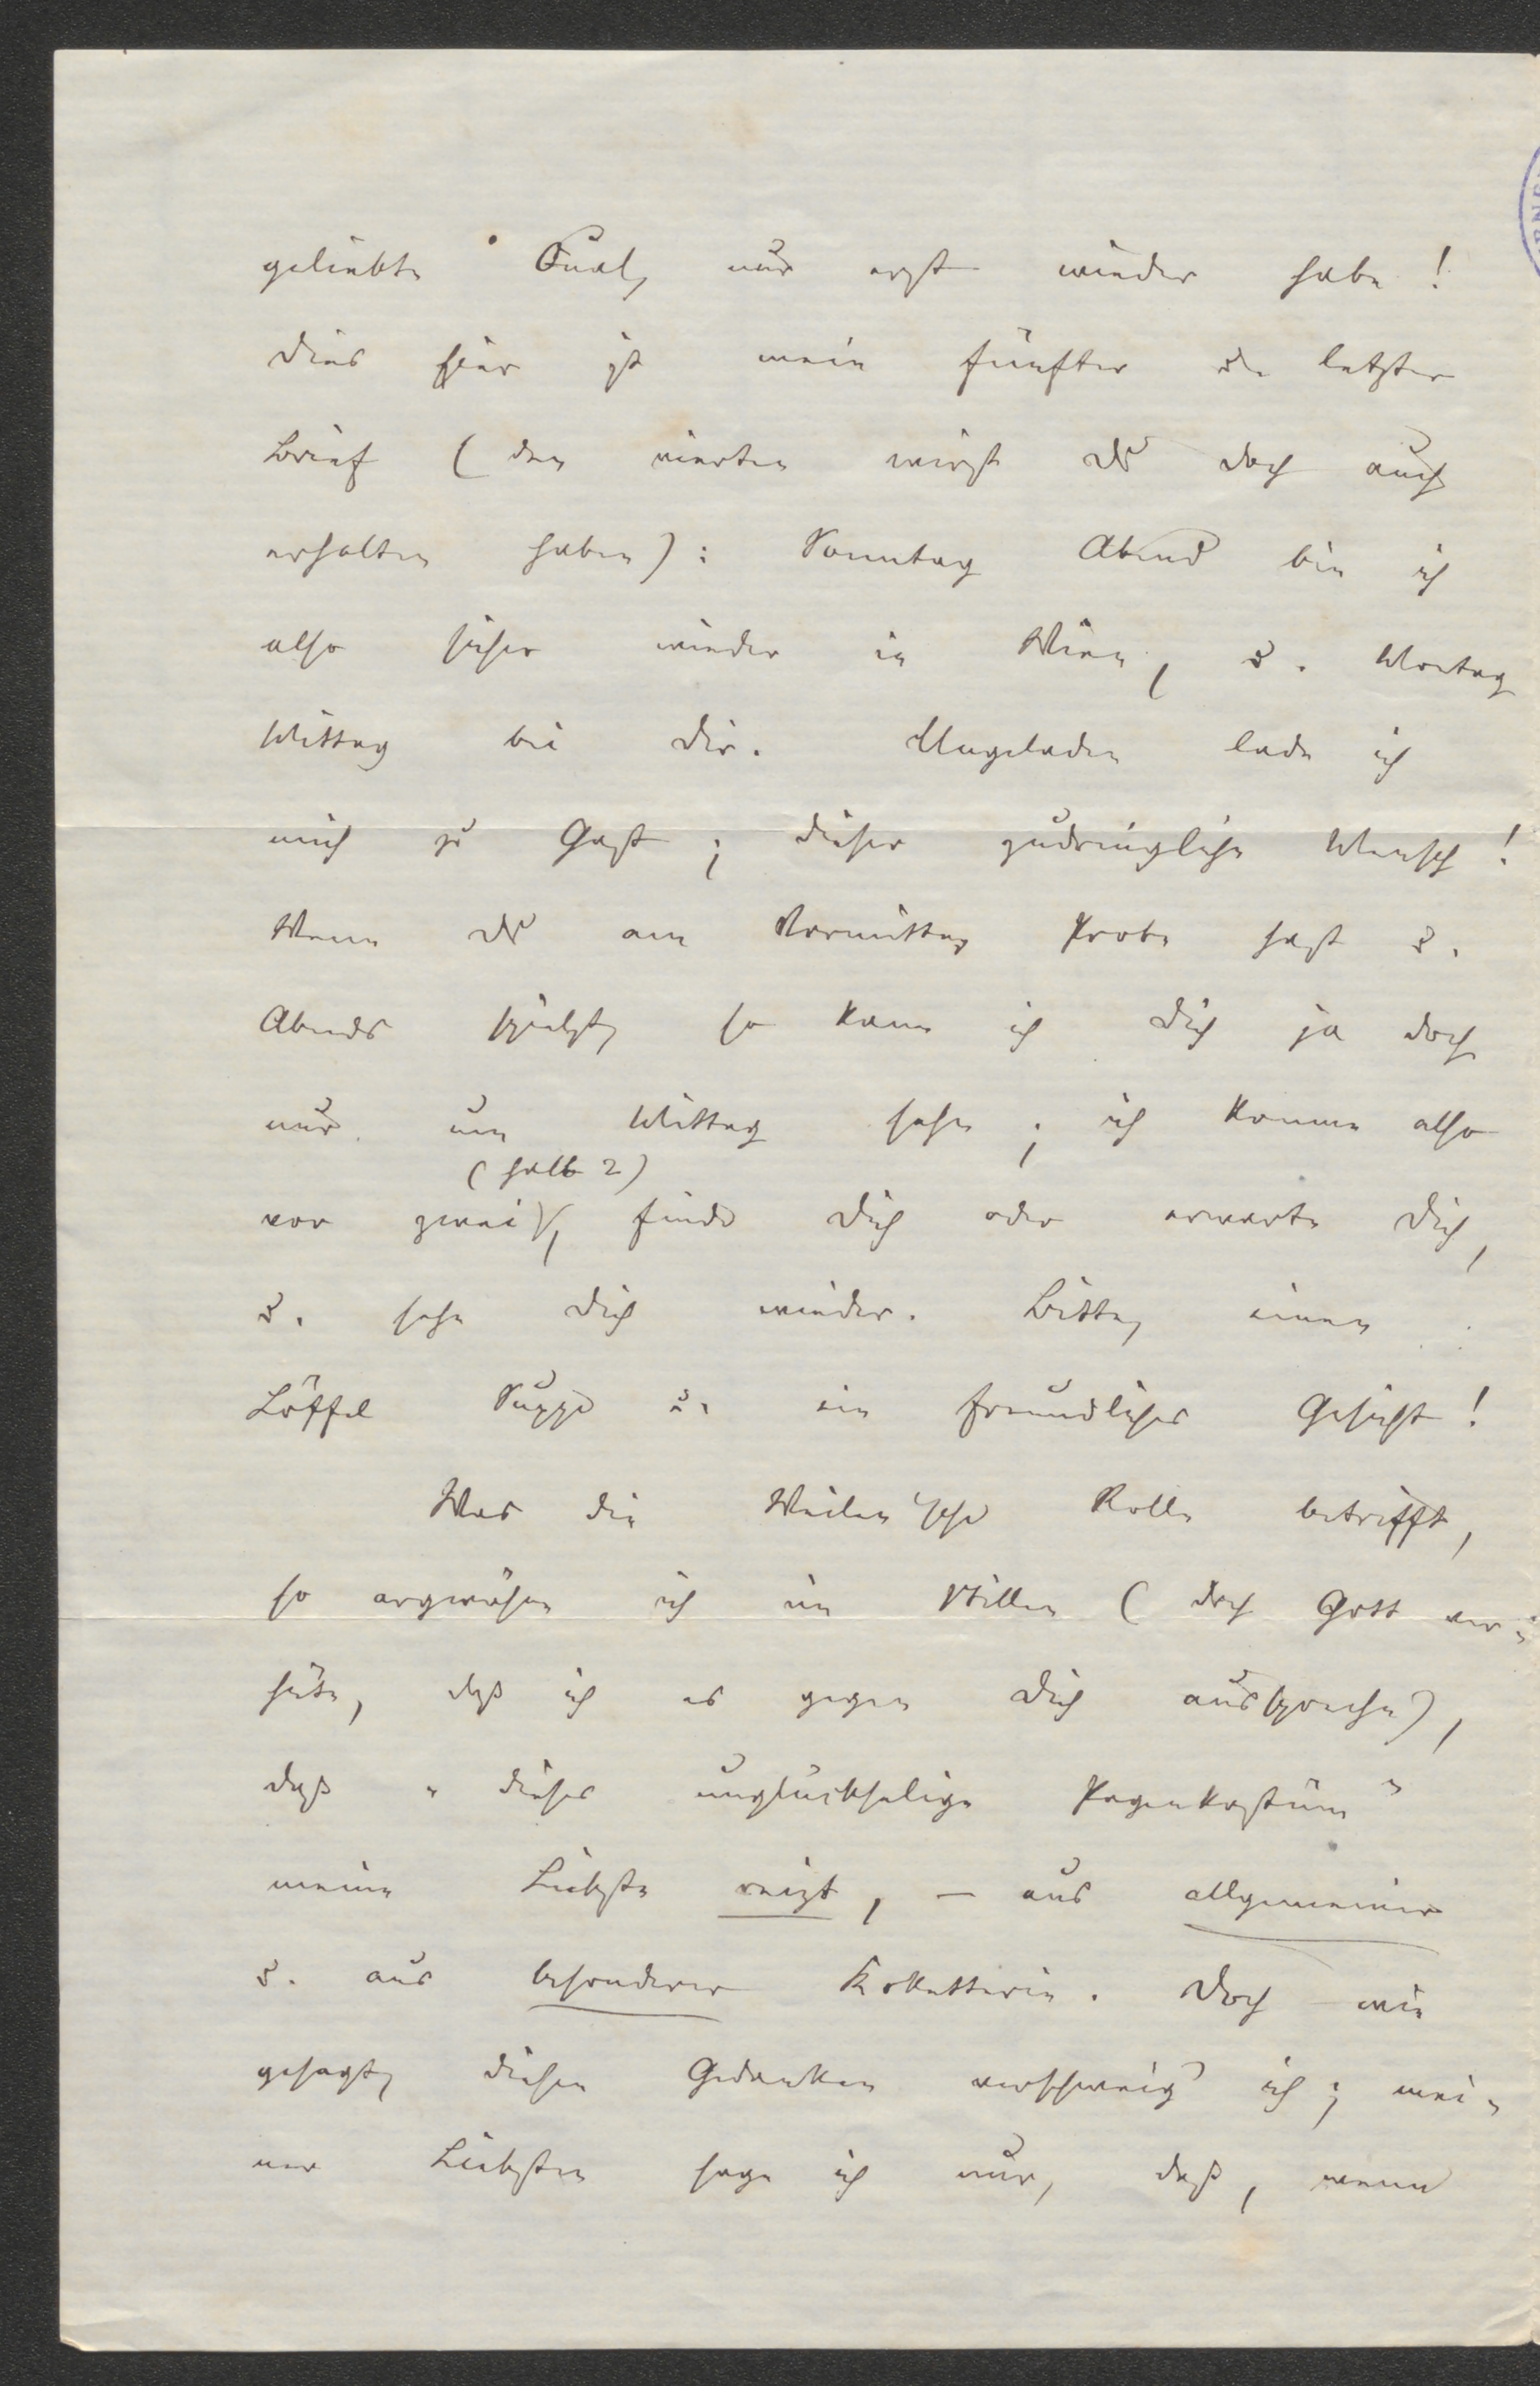 geliebte Qual, nur erst wieder habe!
Dies hier ist mein fünfter u. letzter
Brief (den vierten wirst Du doch auch
erhalten haben): Sonntag Abend bin ich
also sicher wieder in Wien, u. Montag
Mittag bei Dir. Ungeladen lade ich
mich zu Gast; dieser zudringliche Mensch!
Wenn Du am Vormittag Probe hast u.
Abends spielst, so kann ich Dich ja doch
nur um Mittag sehn; ich komme also
(halb 2)
vor zwei, finde Dich oder erwarte Dich,
u. sehe Dich wieder. Bitte, einen
Löffel Suppe u. ein freundliches Gesicht!
Was die Weilen'sche Rolle betrifft,
so argwöhne ich im Stillen (doch Gott ver-
hüte, daß ich es gegen Dich ausspreche),
daß "dieses unglückselige Pagenkostüm"
meine Liebste reizt, – aus allgemeiner
u. aus besonderer Koketterie. Doch wie
gesagt, diesen Gedanken verschweig' ich; mei-
ner Liebsten sage ich nur, daß, wenn